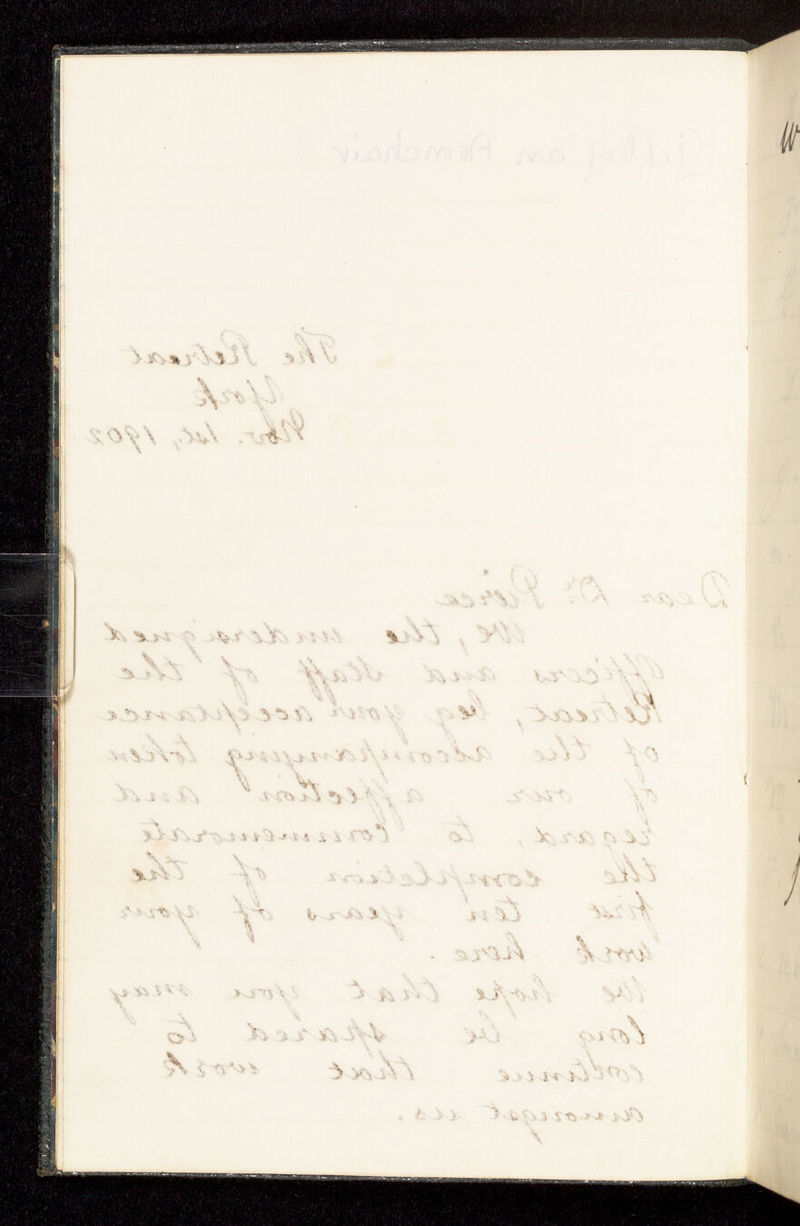 Gift of an Armchair
The Retreat
York
Nov. 1st, 1902
Dear Dr. Pierce
We, the undersigned
Officers and Staff of the
Retreat, beg your acceptance
of the accompanying token
of our affection and
regard, to commemorate
the completion of the
first ten years of your
work here.
We hope that you may
long be spared to
continue that work
amongst us.